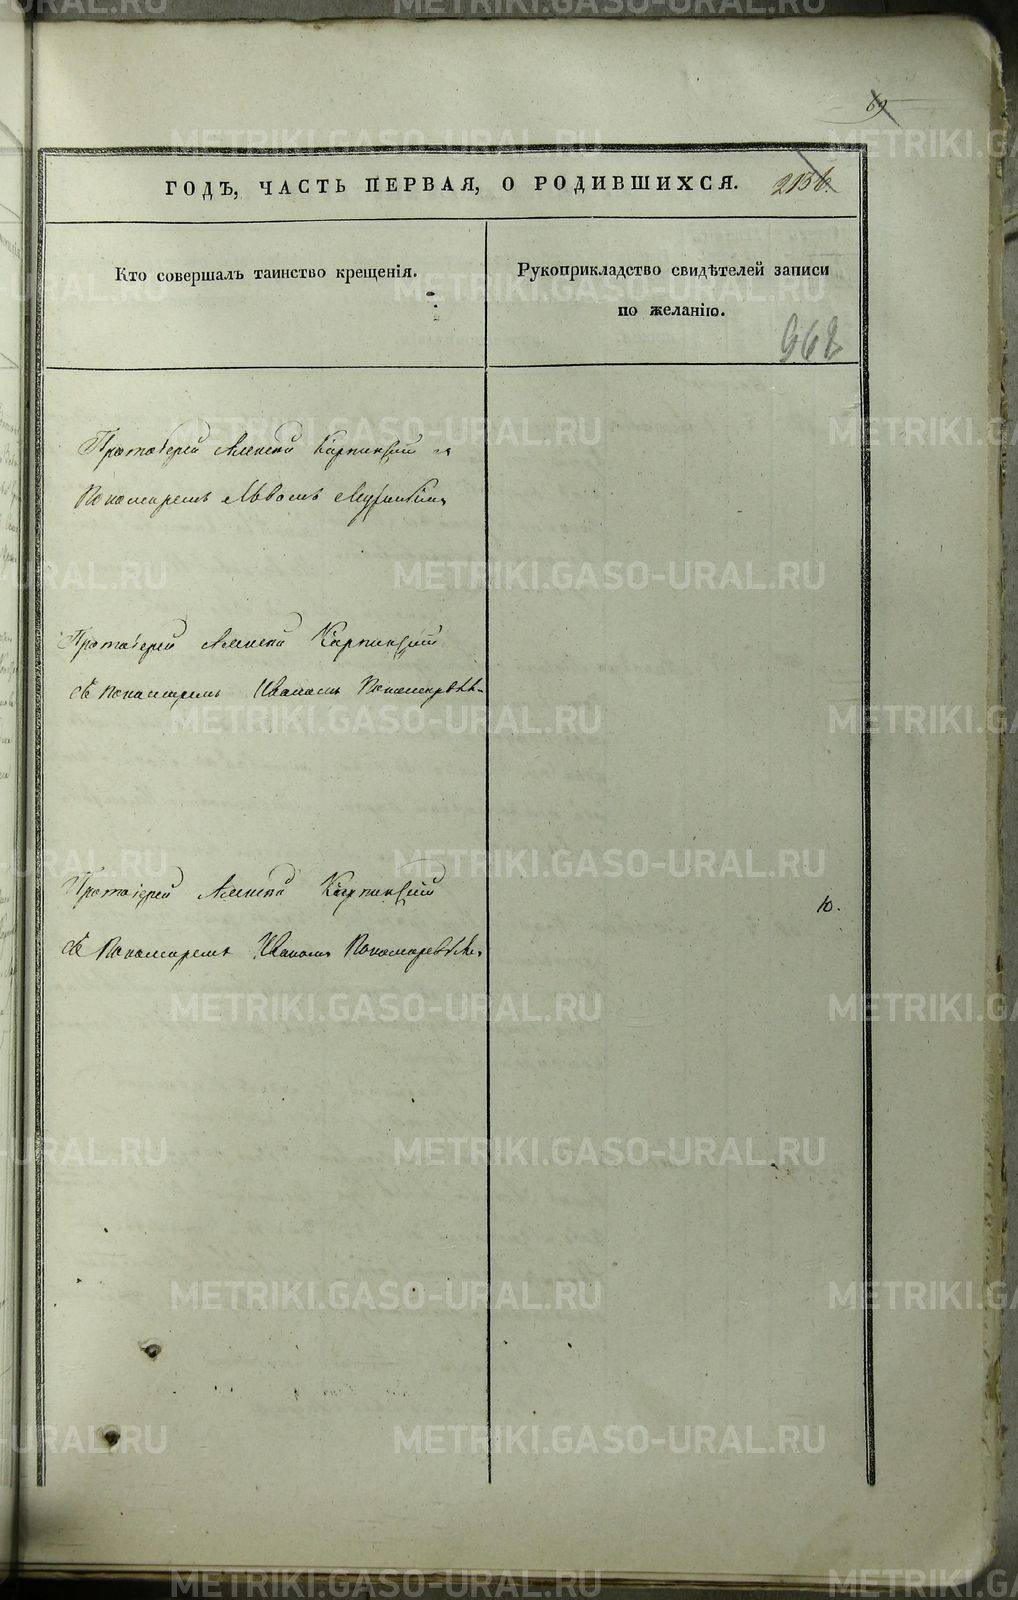 69
ГОДЪ, ЧАСТЬ ПЕРВАЯ, О РОДИВШИХСЯ. 2156.
Кто совершалъ таинство крещенія.
Рукоприкладство свидѣтелей записи
по желанію.
962
Протоіерей Алексей Карпинскій и
Пономаремъ Львомъ
Протоіерей Алексей Карпинскій
съ Пономаремъ Иваномъ Пономаревымъ
Протоіерей Алексей Карпинскій
съ Пономаремъ Иваномъ Пономаревымъ
Ю.
METRIKI.GASO-URAL.RU